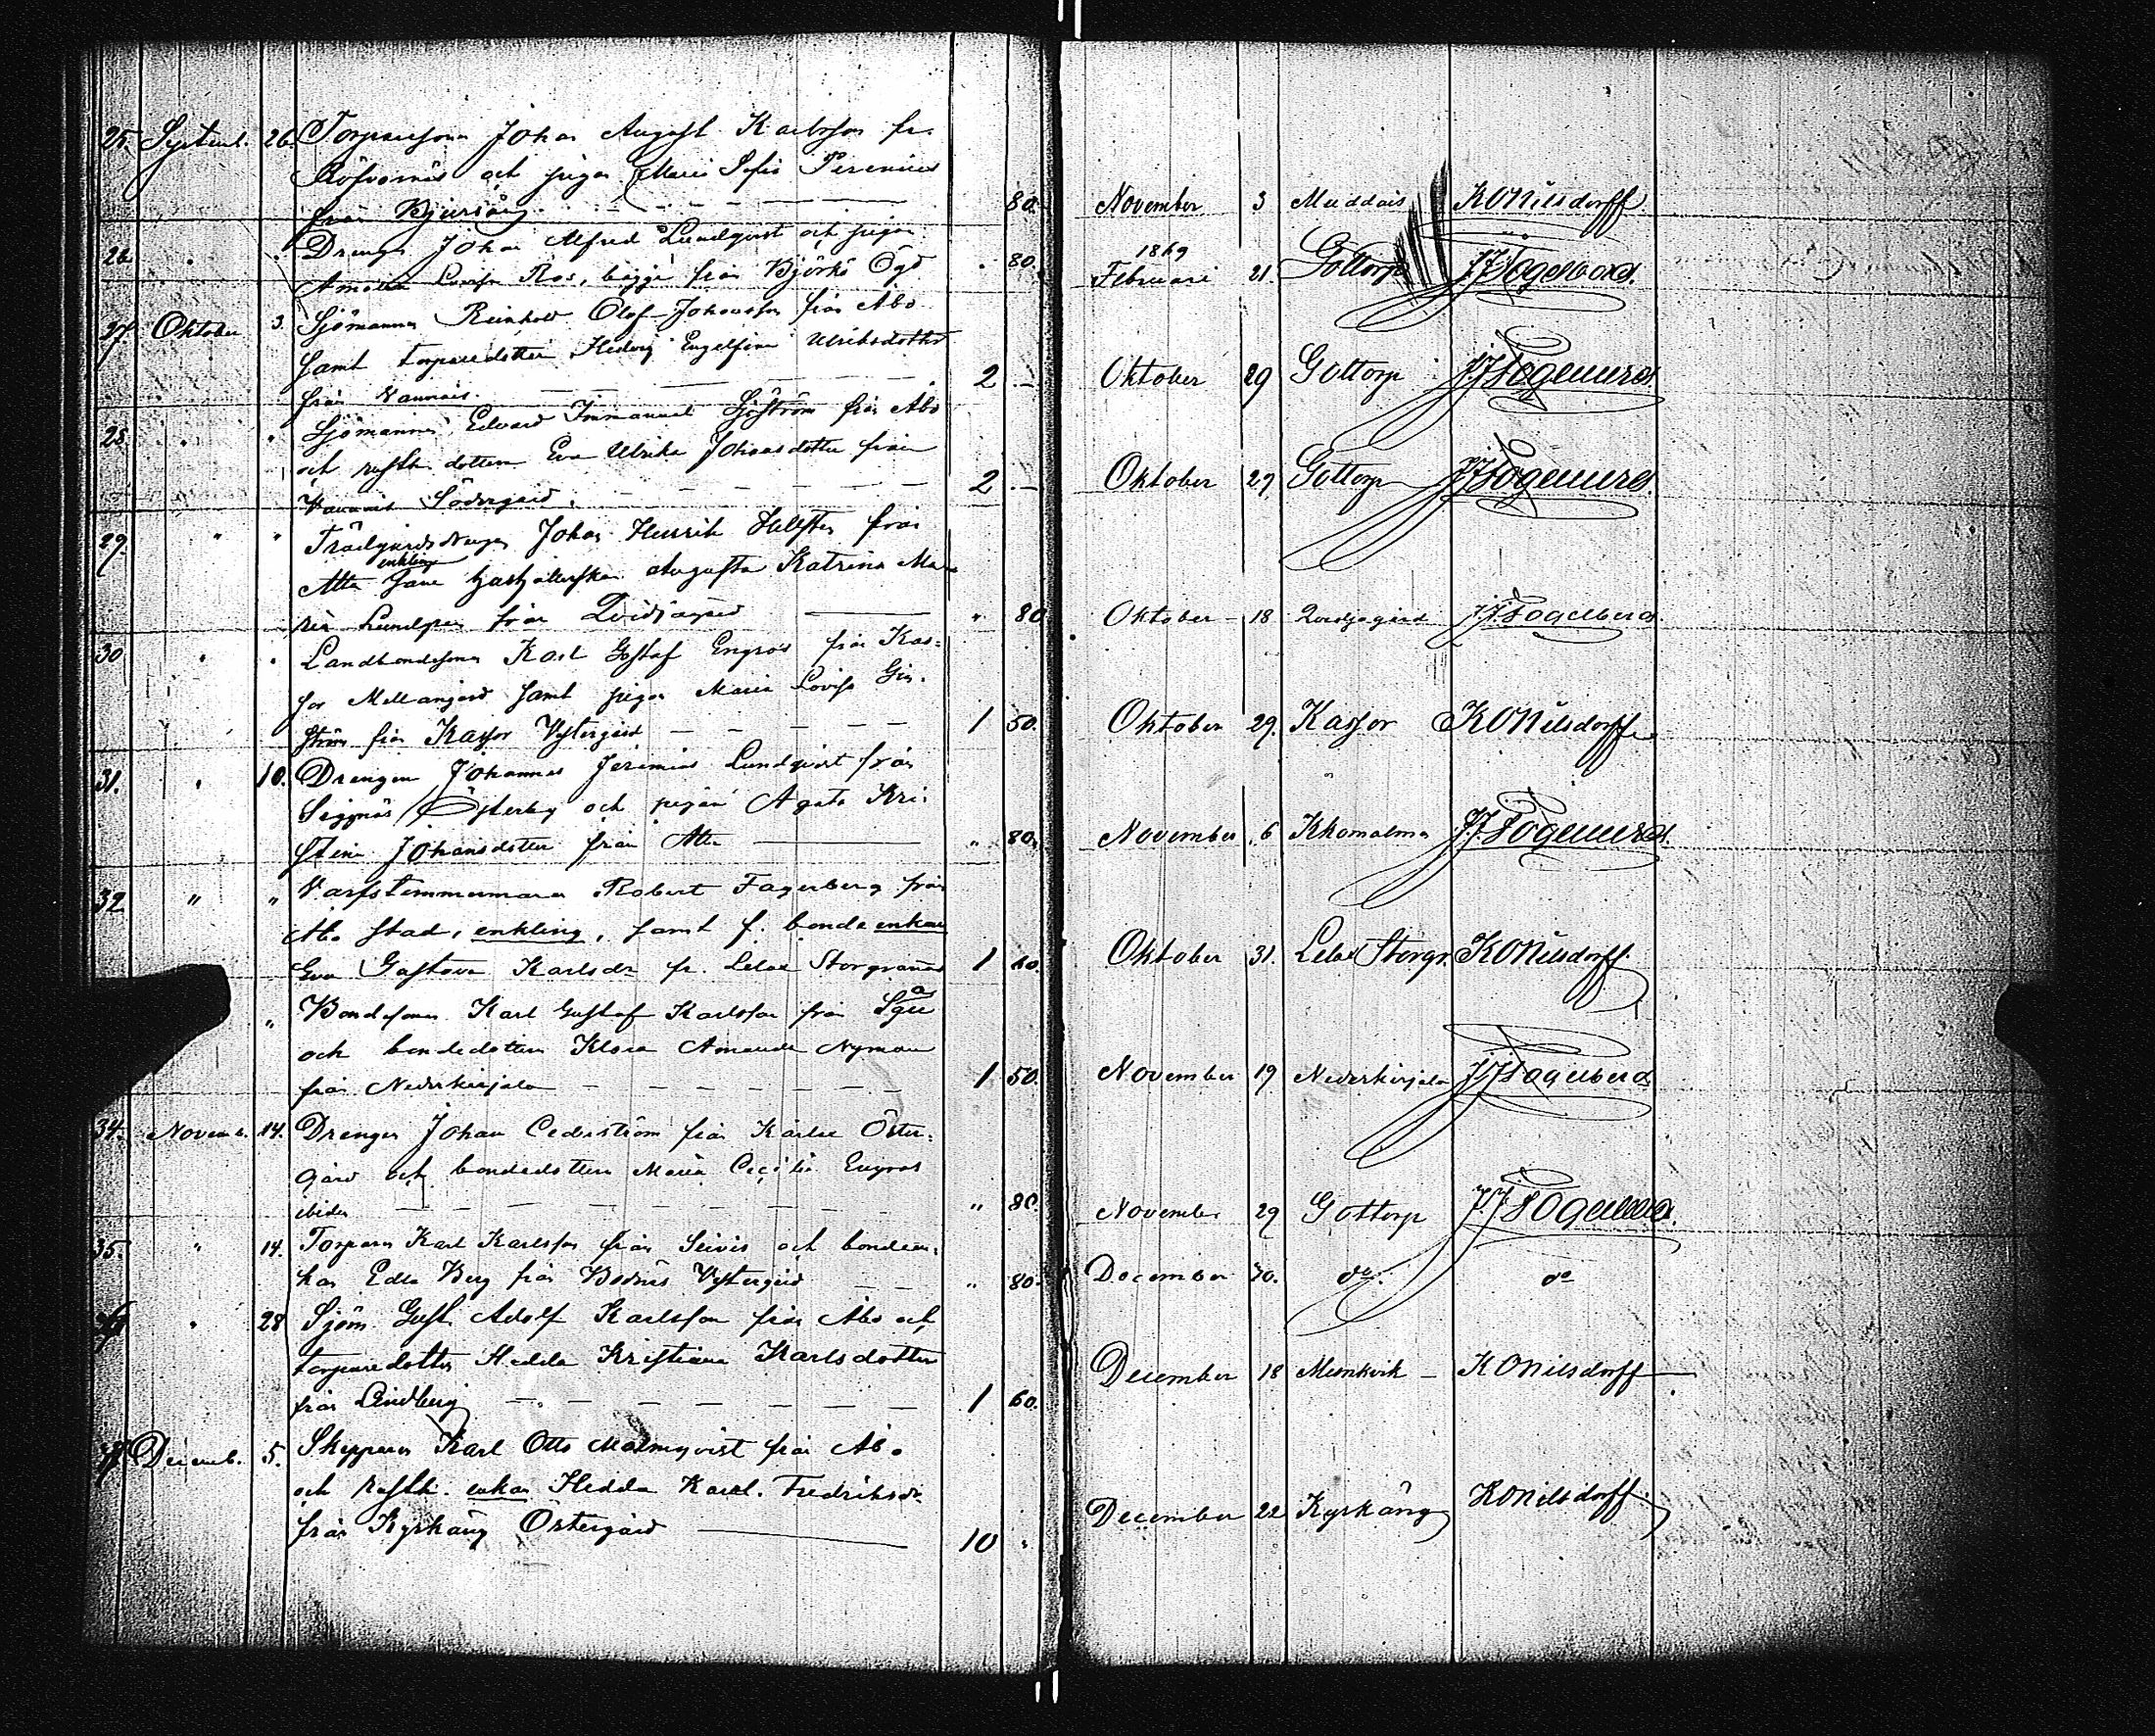 25. Septemb. 26. Torparesonen Johan August Karlsson fr.
Röfvarnäs och pigan Maria Sofia Perenius
från Bjursäng. — 80. November 3 Muddais KONilsdorff.
26. " " Drengen Johan Alfred Lundqvist och pigan
Amalia Lovisa Ros, bägge från Björkö Ögd " 80. 1869 Februari 21. Gottorp JJFogelberg.
27. Oktober 3. Sjömannen Reinhold Olof Johansson från Åbo
samt torparedottren Hedvig Engelfina Ulriksdotter
från Vannais. — 2 — Oktober 29 Gottorp JJFogelberg.
28. " " Sjömannen Edvard Immanuel Sjöström från Åbo
och rusth. dottern Eva Ulrika Johansdotter från
Vannais Södergård. — 2 — Oktober 29 Gottorp JJFogelberg.
29. " " Trädgårdsdrengen Johan Henrik Helsten från
enkling
Attu samt Augusta Katrina Ma-
ria Lundgren från Qvidjagård — " 80 Oktober 18 Qvidjagård JJFogelberg.
30 " " Landbondesonen Karl Gustaf Engros från Kas-
sor Mellangård samt pigan Maria Lovisa Gin-
ström från Kassor Vestergård — 1 50. Oktober 29. Kassor KONilsdorff
31. " 10. Drengen Johannes Jeremias Lundqvist från
Seggnäs Österby och pigan Agata Kri-
stina Johansdotter från Attu — " 80. November 6 Khomalma JJFogelberg.
32 " " Varfstimmerman Robert Fagerberg från
Åbo stad, enkling, samt f. bonde enkan
Eva Gustava Karlsdr fr. Lelax Storgranas 1 60. Oktober 31. Lelax Storgr. KONilsdorff.
" Bondesonen Karl Gustaf Karlsson från
och bondedottern Klara Amanda Nyman
från Nederkirjala — 1 50. November 19 Nederkirjala JJFogelberg
34. Novemb. 14. Drengen Johan Cederström från Kärlax Öster-
gård och bondedottern Maria Cecilia Engros
ibidem — " 80. November 29 Gottorp JJFogelberg.
35. " 14. Torparen Karl Karlsson från Seivis och bondeen-
kan Edla Berg från Bodnäs Vestergård " 80. December 30. do. do
36 " 28 Sjöm. Gust. Adolf Karlsson från Åbo och
torparedotter Hedda Kristiana Karlsdotter
från Lindberg — 1 60. December 18 Munkvik — KONilsdorff
37 Decemb. 5. Skepparen Karl Otto Malmqvist från Åbo
och rusth. enkan Hedda Karol. Fredriksdr
från Kyrkäng Östergård — 10 " December 22 Kyrkäng KONilsdorff.